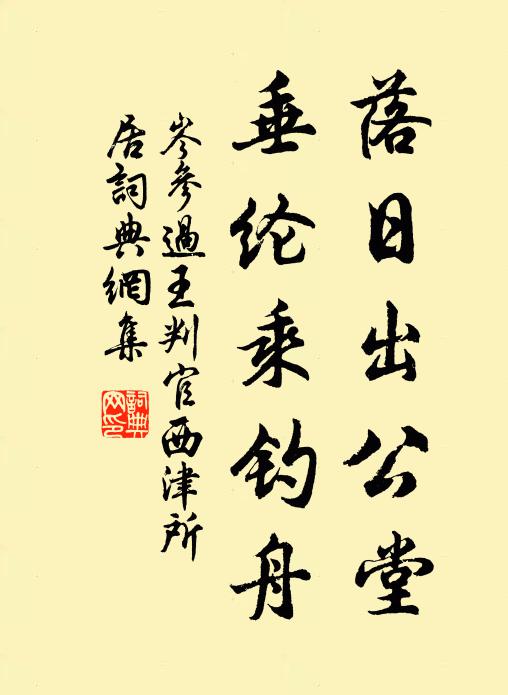 落日出公堂
垂纶乘钓舟
岑參過王判官西津所
居詞典網集
詞典
网印